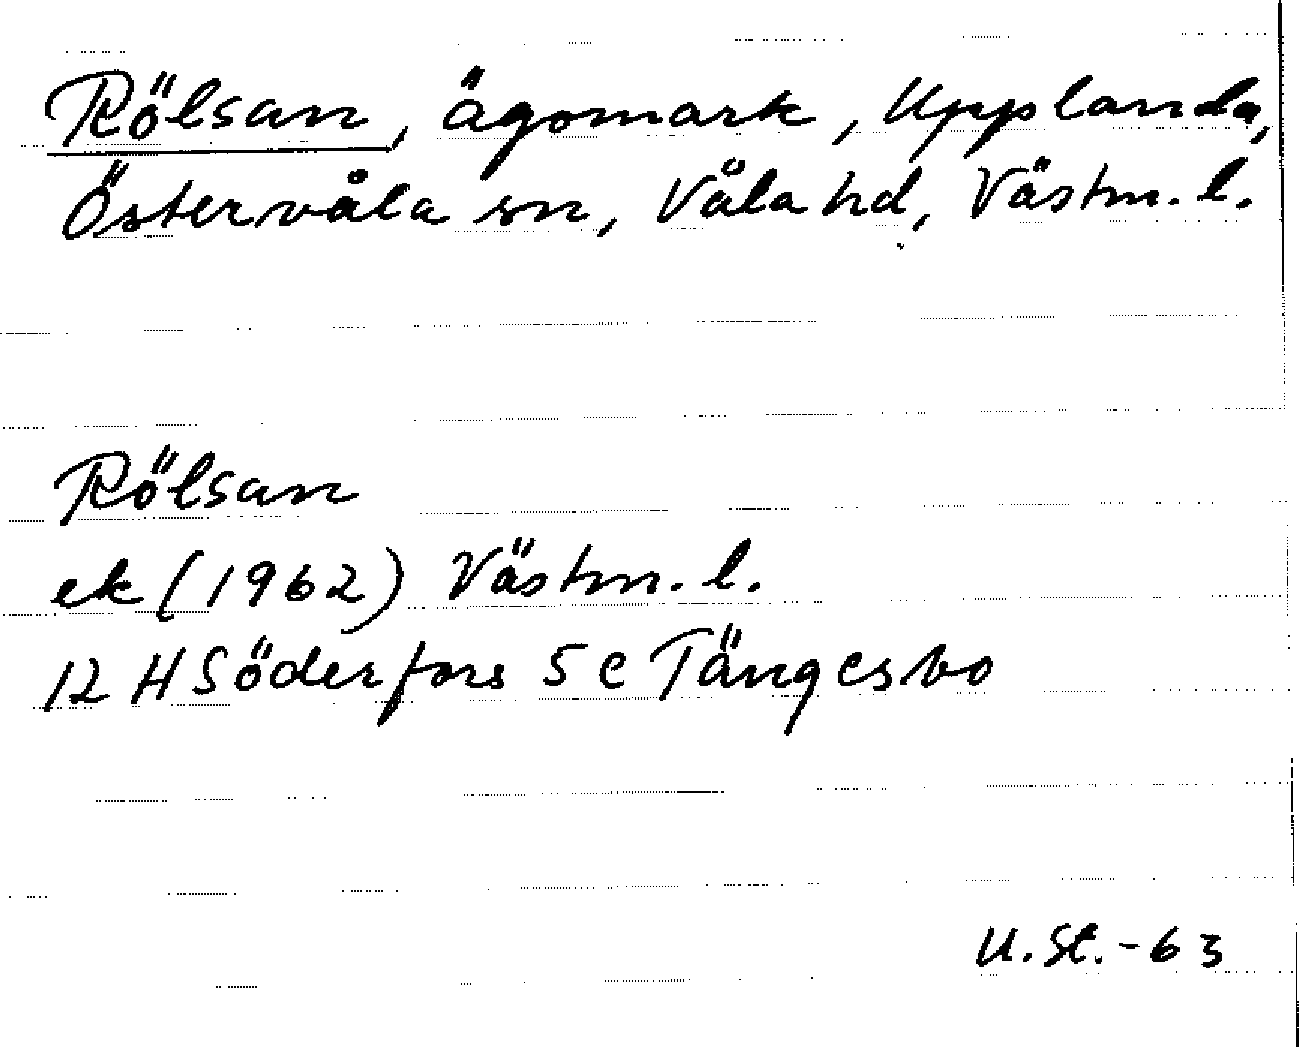 Rölsan, ägomark, Upplanda,
Östervåla sn, Våla hd, Västm. l.
Rölsan
ek (1962) Västm. l.
12 H Söderfors 5 e Tängesbo
U. St. - 63